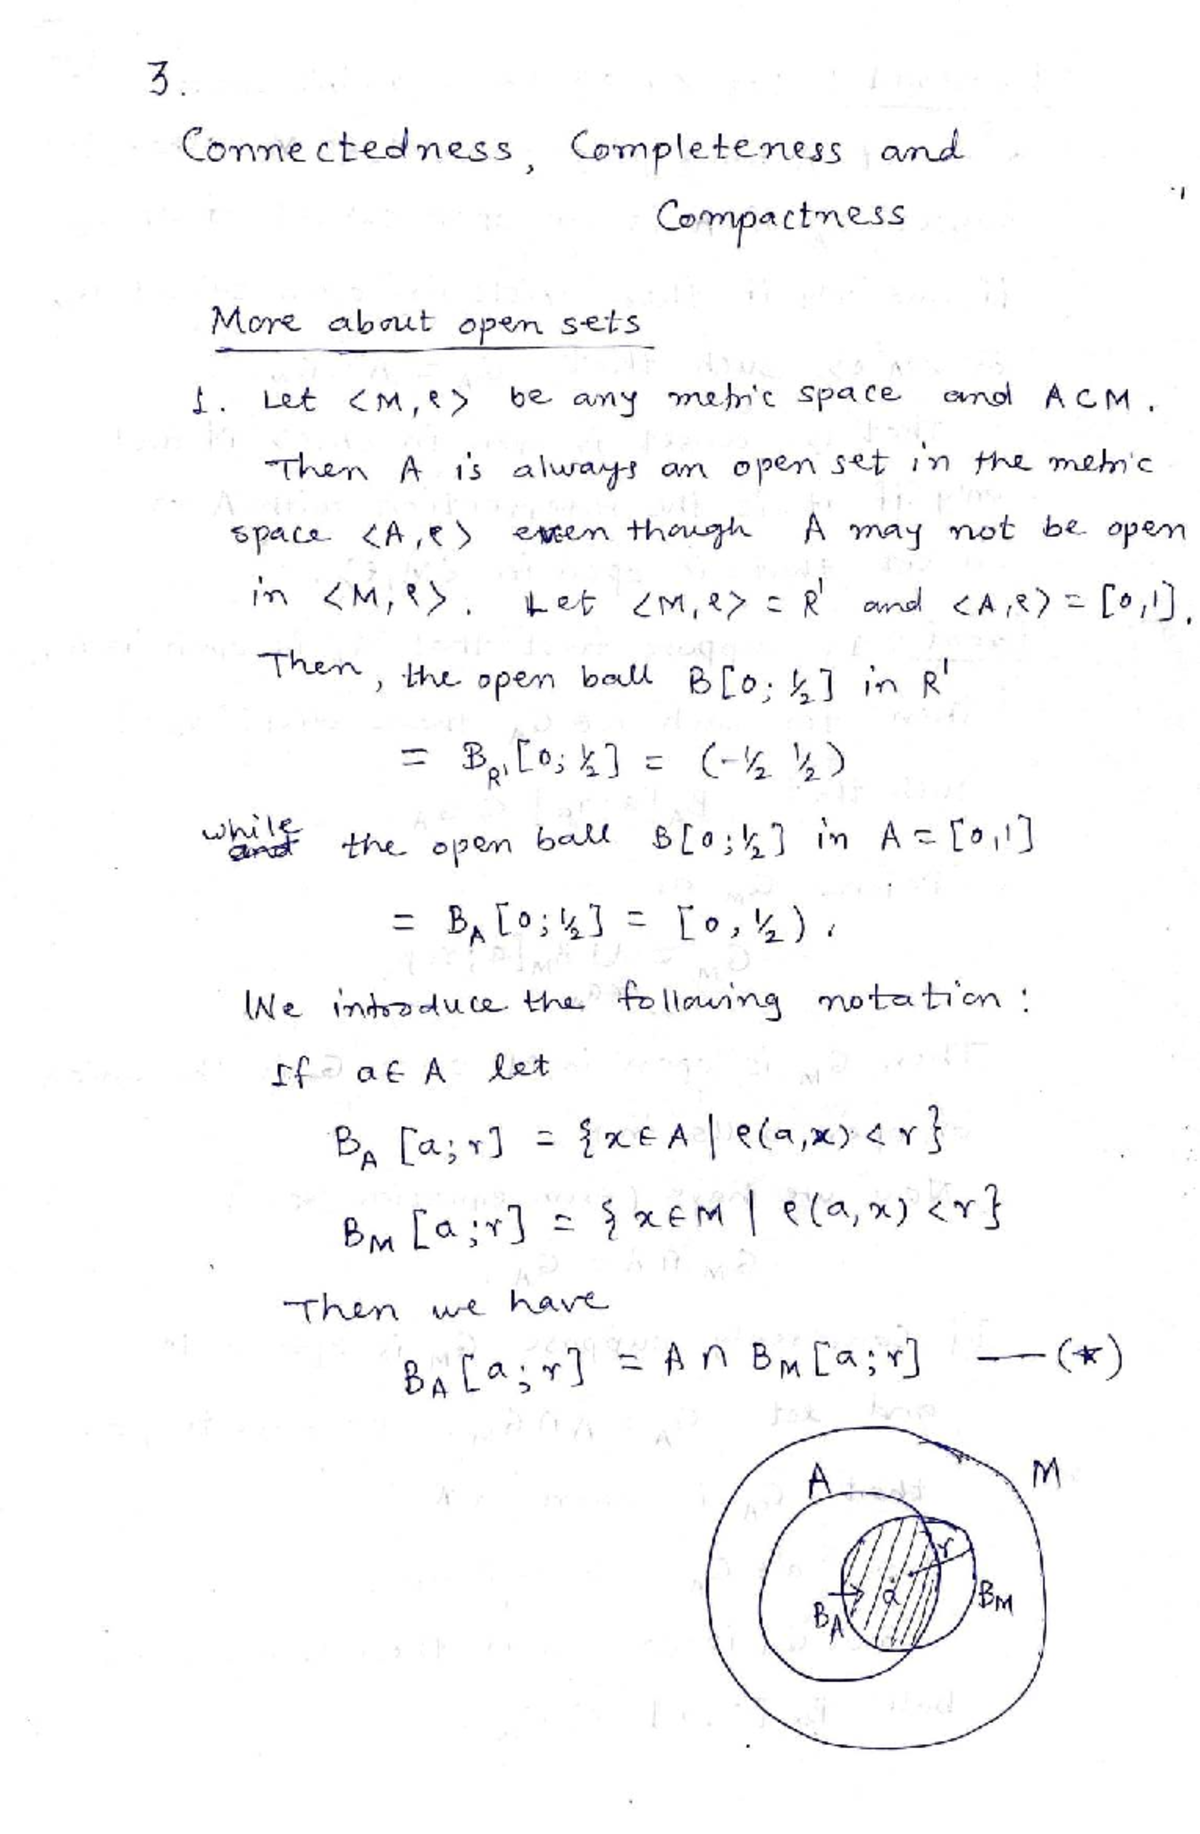 3.
Connectedness, Completeness and
Compactness
More about open sets
1. Let <M,ρ> be any metric space and A⊂M.
Then A is always an open set in the metric
space <A,ρ> even though A may not be open
in <M,ρ>. Let <M,ρ> = R¹ and <A,ρ> = [0,1].
Then, the open ball B[0; ½] in R¹
= B_R¹[0; ½] = (-½ ½)
while the open ball B[0; ½] in A = [0,1]
= B_A[0; ½] = [0, ½).
We introduce the following notation :
If a∈A let
B_A [a; r] = {x∈A | ρ(a,x) < r}
B_M [a; r] = {x∈M | ρ(a,x) < r}
Then we have
B_A[a; r] = A ∩ B_M[a; r] —(*)
A M
r
a B_M
B_A